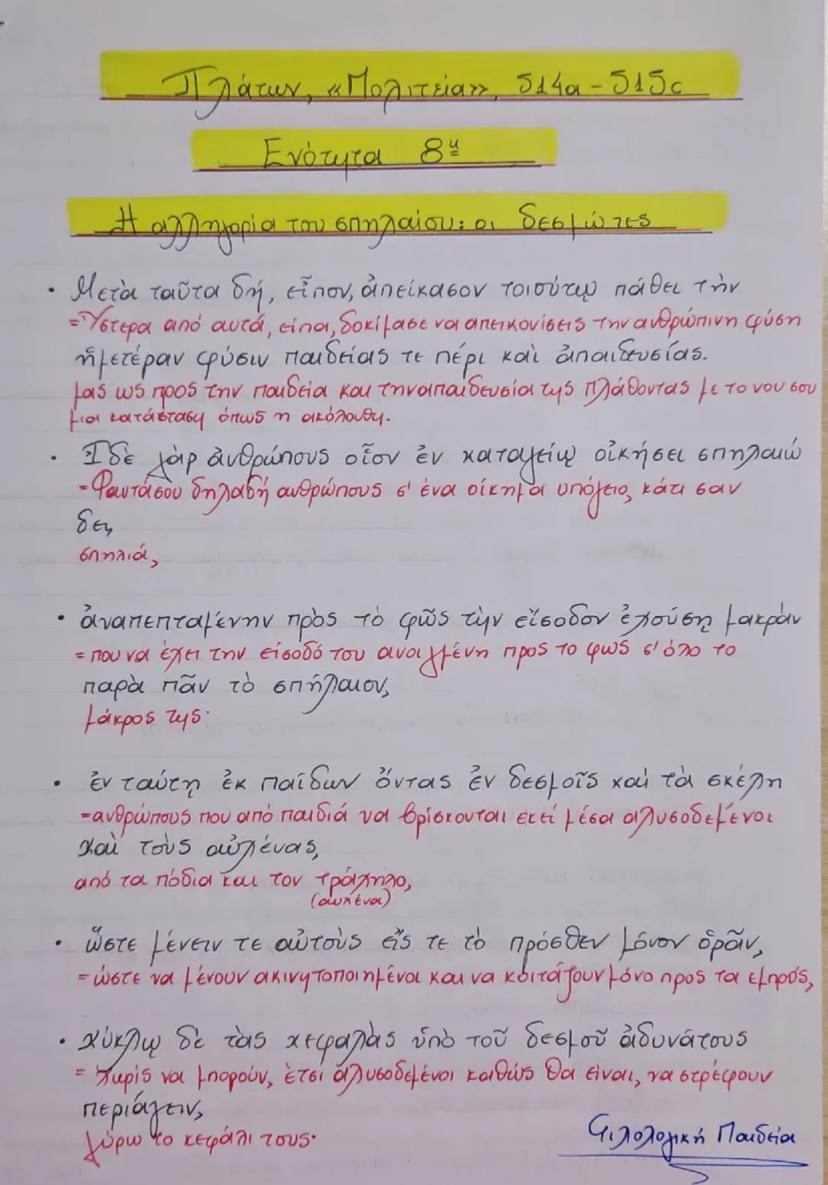 Πλάτων, «Πολιτεία», 514a – 515c
Ενότητα 8η
Η αλληγορία του σπηλαίου: οι δεσμώτες
• Μετὰ ταῦτα δή, εἶπον, ἀπείκασον τοιούτῳ πάθει τὴν
= Ύστερα από αυτά, είπα, δοκίμασε να απεικονίσεις την ανθρώπινη φύση
ἡμετέραν φύσιν παιδείας τε πέρι καὶ ἀπαιδευσίας.
μας ως προς την παιδεία και την απαιδευσία της πλάθοντας με το νου σου
μια κατάσταση όπως η ακόλουθη.
• Ἰδὲ γὰρ ἀνθρώπους οἷον ἐν καταγείῳ οἰκήσει σπηλαιώ
= Φαντάσου δηλαδή ανθρώπους σ' ένα οίκημα υπόγειο, κάτι σαν
δει,
σπηλιά,
• ἀναπεπταμένην πρὸς τὸ φῶς τὴν εἴσοδον ἐχούσῃ μακρὰν
= που να έχει την είσοδό του ανοιγμένη προς το φως σ' όλο το
παρὰ πᾶν τὸ σπήλαιον,
μάκρος της·
• ἐν ταύτῃ ἐκ παίδων ὄντας ἐν δεσμοῖς καὶ τὰ σκέλη
= ανθρώπους που από παιδιά να βρίσκονται εκεί μέσα αλυσοδεμένοι
καὶ τοὺς αὐχένας,
από τα πόδια και τον τράχηλο,
(αυχένα)
• ὥστε μένειν τε αὐτοὺς εἴς τε τὸ πρόσθεν μόνον ὁρᾶν,
= ώστε να μένουν ακινητοποιημένοι και να κοιτάζουν μόνο προς τα εμπρός,
• κύκλῳ δὲ τὰς κεφαλὰς ὑπὸ τοῦ δεσμοῦ ἀδυνάτους
= χωρίς να μπορούν, έτσι αλυσοδεμένοι καθώς θα είναι, να στρέφουν
περιάγειν,
γύρω το κεφάλι τους·
Φιλολογική Παιδεία